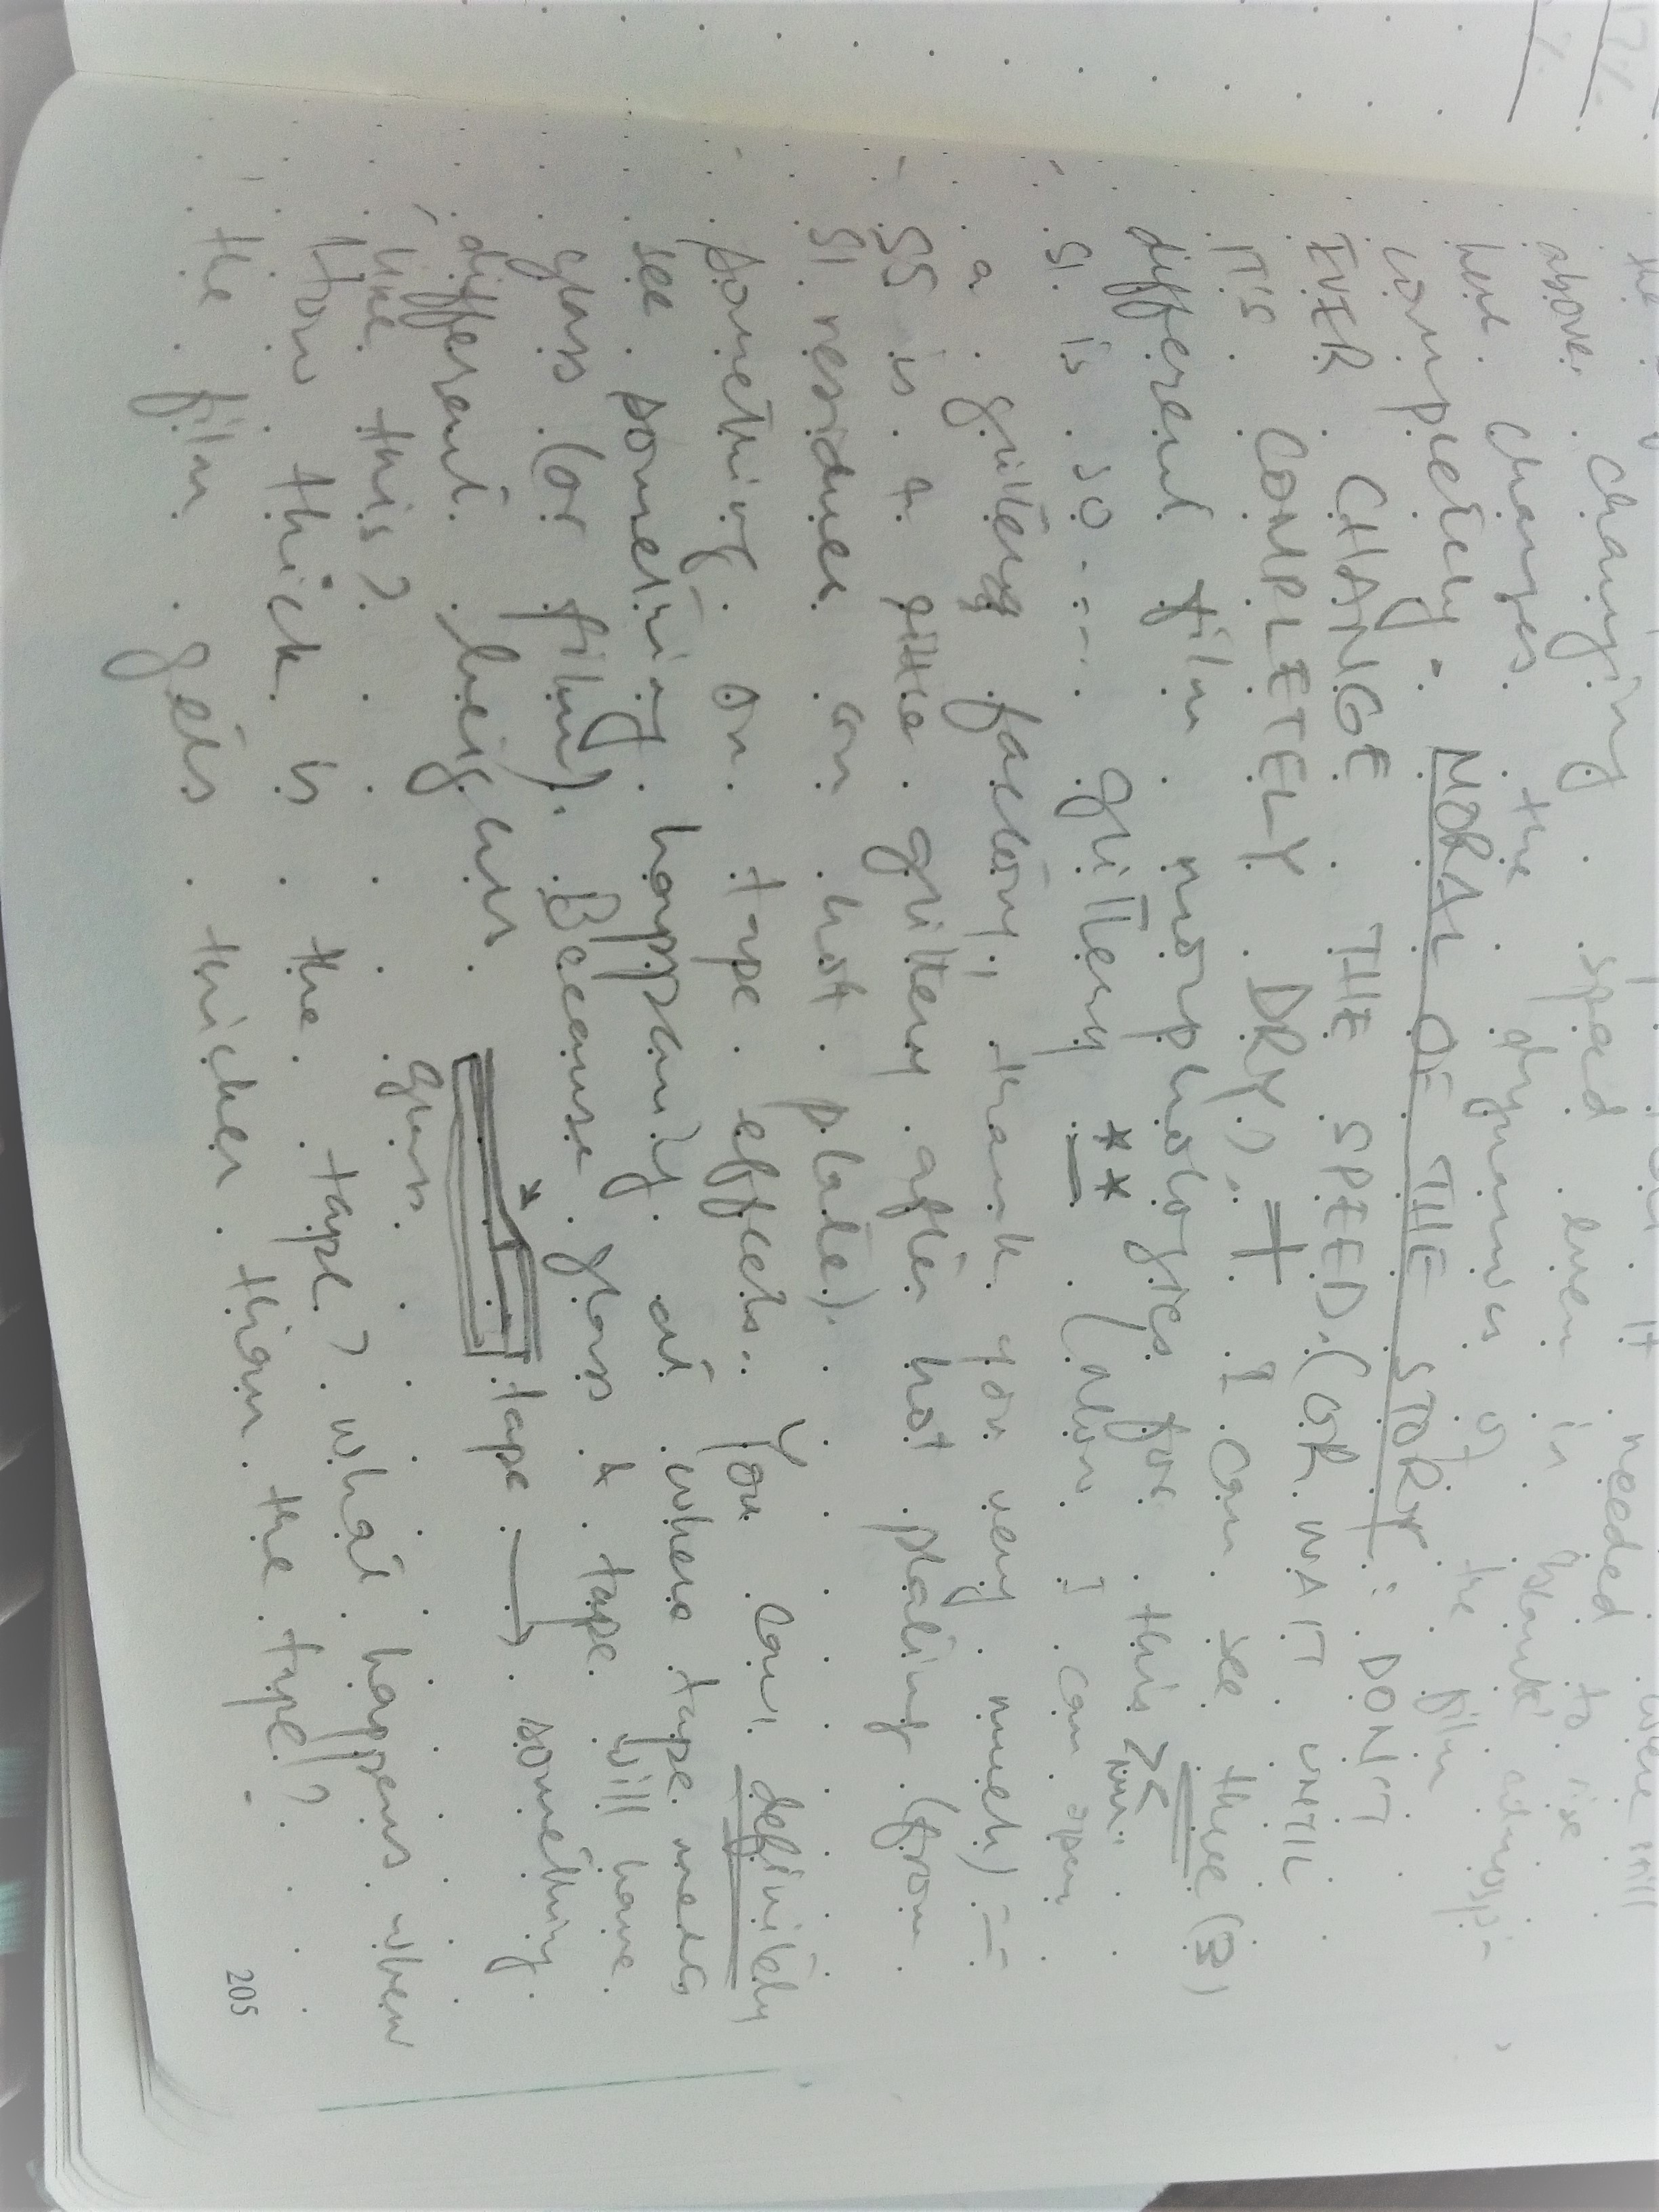 it needed were still
changing speed even in to rise
above. the dynamics of the atmosp-
here changes the film
completely. MORAL OF THE STORY: DON'T
EVER CHANGE THE SPEED. (OR WAIT UNTIL
IT'S COMPLETELY DRY). I can see three (3)
different film morphologies for this
S1 is so --- glittery ** (also I can open
a glittery factory, thank you very much) --
S5 is a little glittery after hot plating (from
S1 residues on hot plate).
- Something on tape effects.. You can definitely
see something happening at where tape meets
glass (or film). Because glass & tape will have
different heights tape → something
like this? glass
- How thick is the tape? What happens when
the film gets thicker than the tape?
205
17%
%